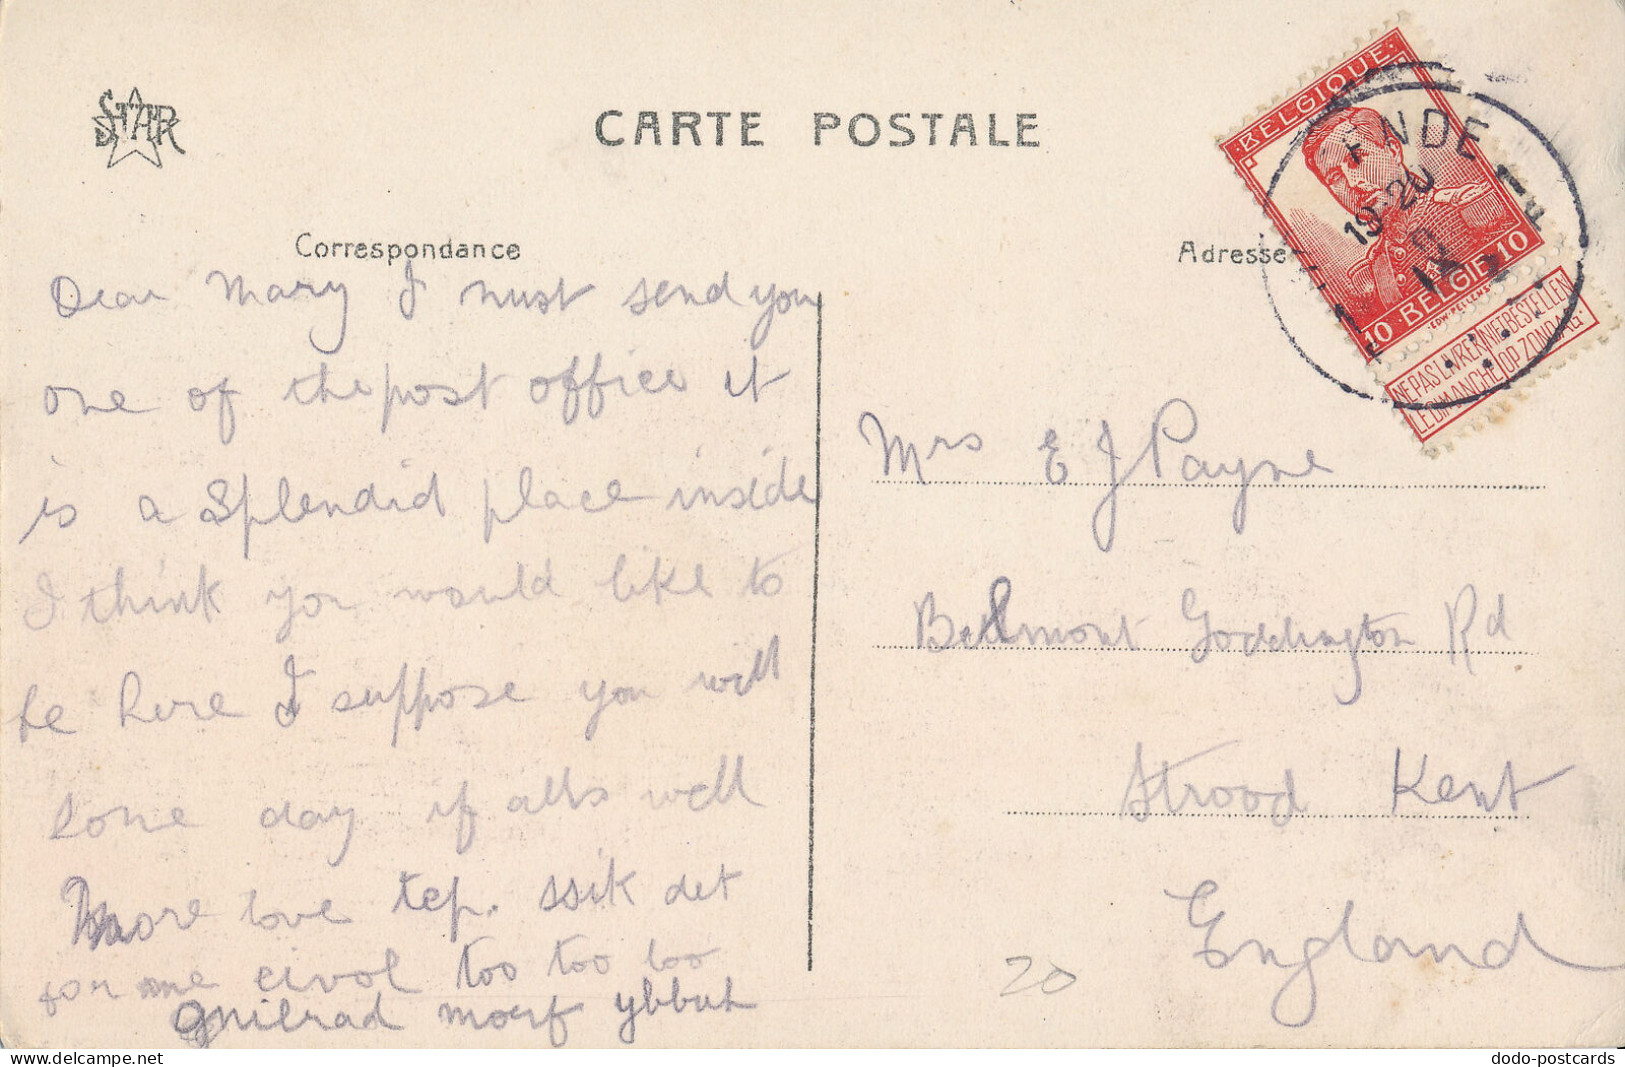 STAR
CARTE POSTALE
Correspondance
Adresse
BELGIQUE
10 BELGIE 10
EDW. PELLENS
NE PAS LIVRER LE DIMANCHE
NIET BESTELLEN OP ZONDAG
ENDE
19-20
Dear Mary I must send you
one of the post office it
is a Splendid place inside
I think you would like to
be here I suppose you will
some day if alls well
More love tep. ssik det
for me eivol too too too
gnilrad morf ybbuh
Mrs E J Payne
Bellmont Goddington Rd
Strood Kent
England
20
dodo-postcards